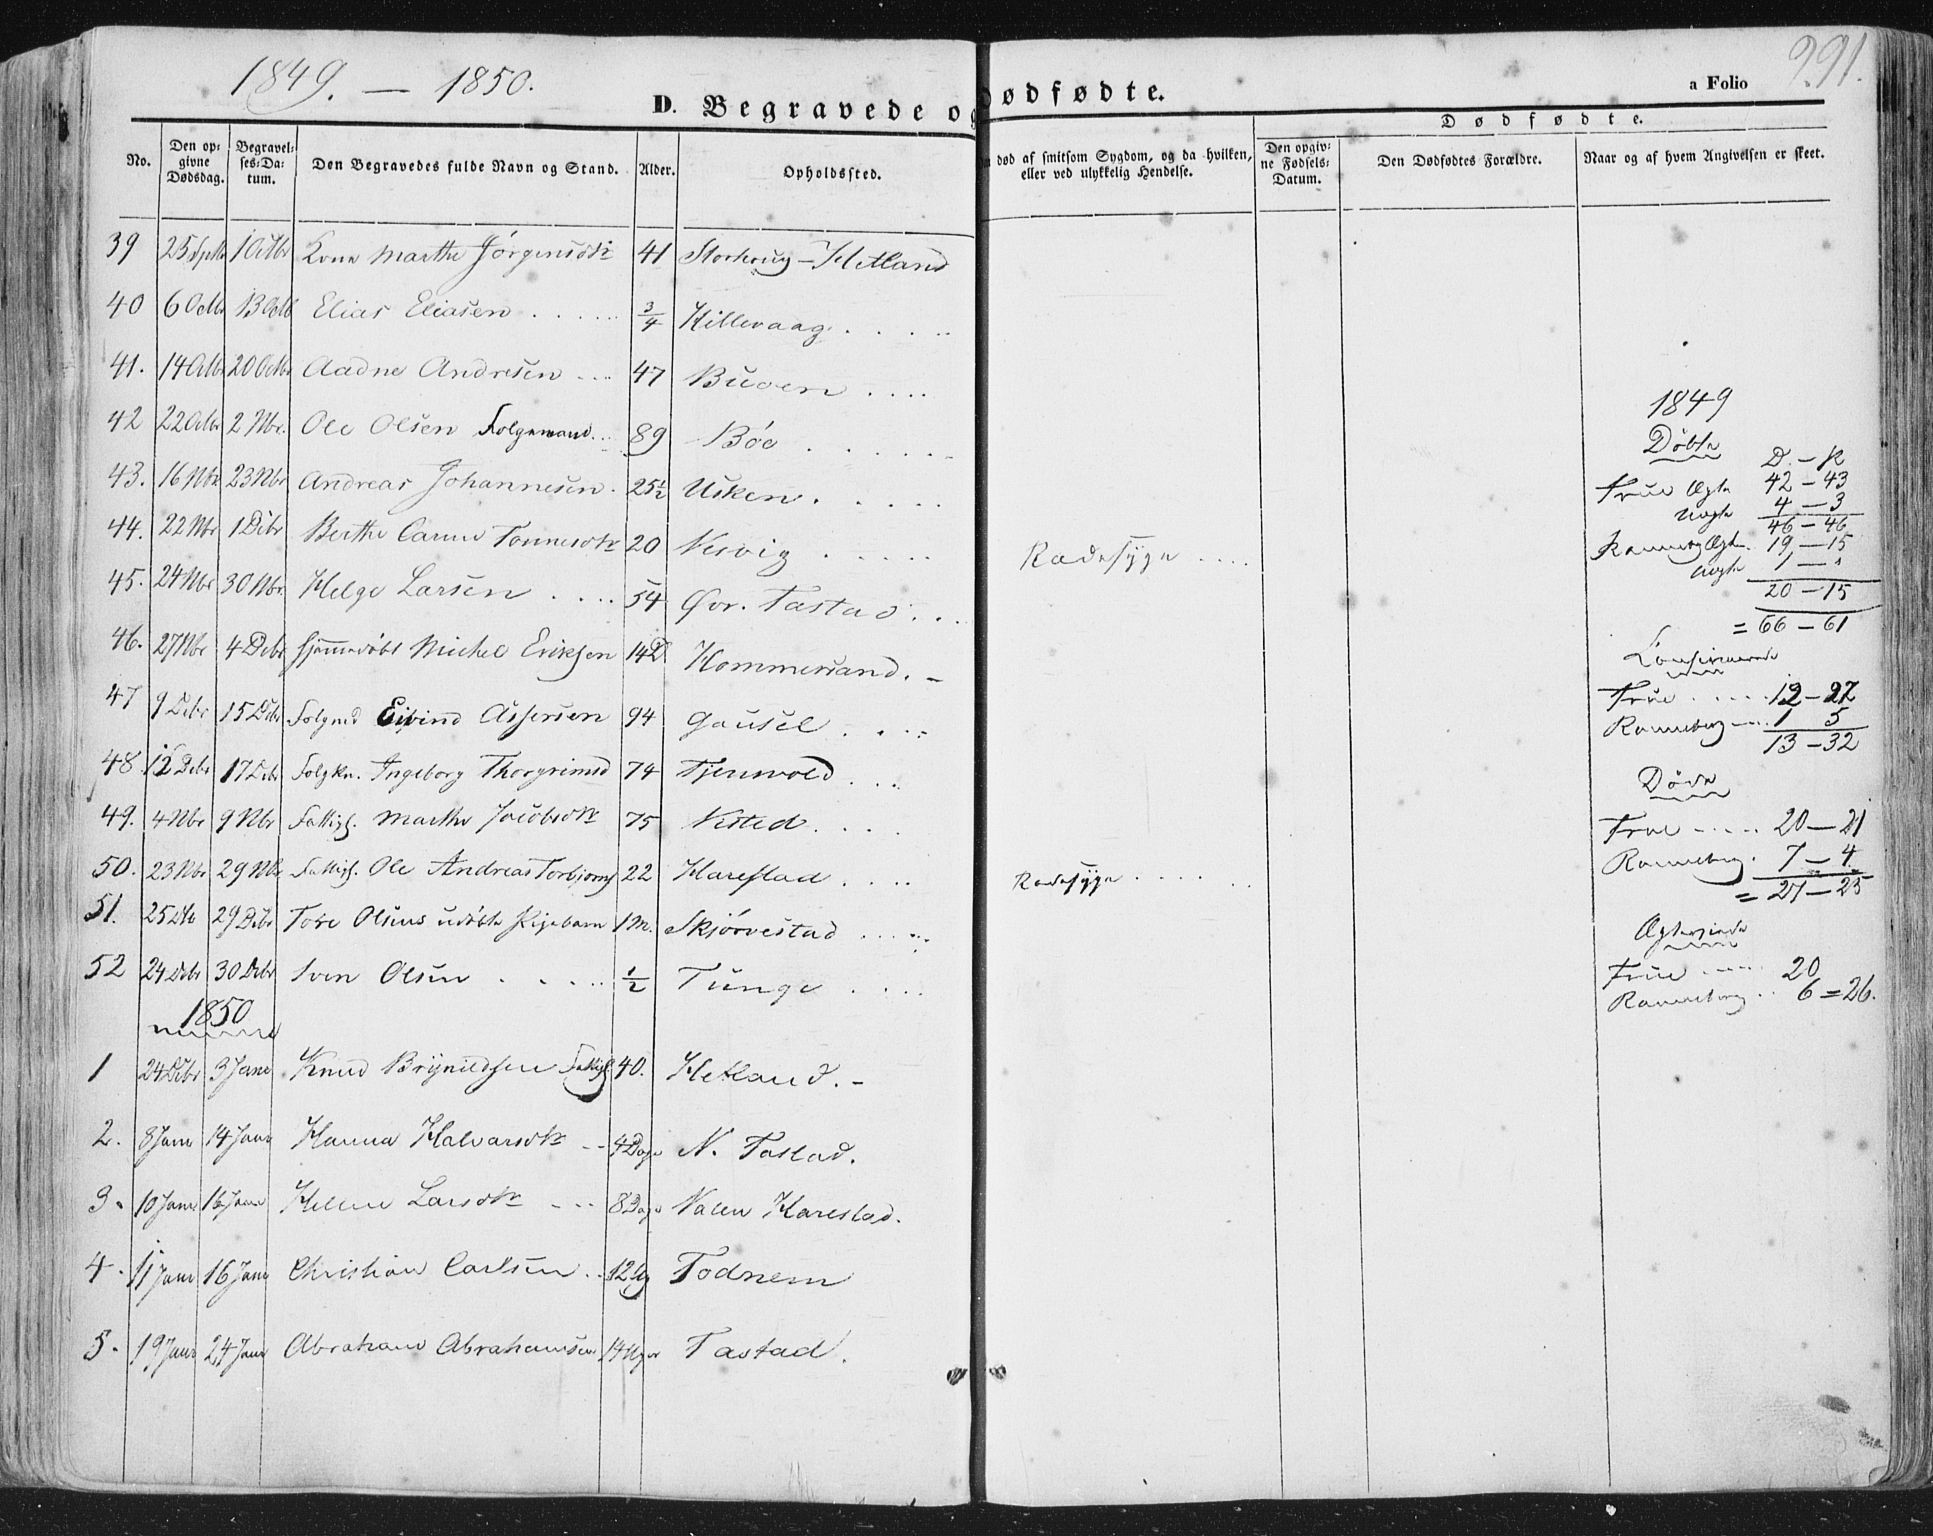 1849. — 1850.
D. Begravede og Dødfødte.
a Folio 291.
Dødfødte.
No. | Den opgivne Dødsdag. | Begravelses-Datum. | Den Begravedes fulde Navn og Stand. | Alder. | Opholdssted. | død af smitsom Sygdom, og da hvilken, eller ved ulykkelig Hendelse. | Den opgivne Fødsels-Datum. | Den Dødfødtes Forældre. | Naar og af hvem Angivelsen er skeet.
39 25 Septbr 1 Octbr Kone Marthe Jörgensdtr 41 Storhoug - Hetland
40 6 Octbr 13 Octb Elias Eliasen . . . . . . 3/4 Hillevaag . . . . .
41. 14 Octbr 20 Octbr Aadne Andresen . . . 47 Buoen . . . .
42 22 Octbr 2 Nbr. Ole Olsen Folgemand . . 89 Böe . . . . . .
43. 16 Nbr 23 Nbr Andreas Johannesen . 25½ Usken . . . . .
44. 22 Nbr 1 Dcbr Berthe Tonnesdtr 20 Nesvig . . . . . Radesyge . . . .
45. 24 Nbr 30 Nbr. Helge Larsen . . . . 54 Övr. Tastad . . .
46. 27 Nbr 4 Debr hjemmedöbt Michel Eriksen 14 D. Hommersand. -
47 9 Debr 15 Debr Folgmd Eivind Assersen 94 Gausel . . . .
48. 12 Debr 17 Debr Folgkn. Ingeborg Thorgrimsd 74 Tjensvold . . .
49. 4 Nbr 9 Nbr Fattigl. Marthe Jacobsdtr 75 Nisted . . . .
50. 23 Nbr 29 Nbr Fattigl. Ole Andreas Torbjorns 22 Harestad . . . . Radesyge . . . . . . .
51. 25 29 Debr Tore Olsens udöbte Pigebarn 1 M. Skjörvestad . . . . .
52 24 Debr 30 Debr Sven Olsen . . . . . 1/2 Tunge . . . .
1850
1 24 Debr 3 Janr Knud Brynildsen Fattigl 40. Hetland. -
2. 8 Janr 14 Janr Hanna Halvarsdtr - - 4 Dage N. Tastad.
3. 10 Janr 16 Janr Helene Larsdtr - - - 8 Dage Harestad.
4. 11 Janr 16 Janr Christian Carlsen . . 12 Ug Todnem
5. 19 Janr 24 Janr Abraham Abrahamsen 14 Uger Tastad.
1849
Döbte
D. - P
Frue Ægte 42 - 43
Uægte 4 - 3
46 - 46
Ranneberg Ægte. 19 - 15
Uægte 1 - "
20 - 15
= 66 - 61
Confirmerede
Frue . . . . . 12 - 27
Ranneberg . . . . 1 5
13 - 32
Döde
Frue . . . . . 20 - 21
Ranneberg. 7 - 4
= 27 - 25
Ægteviede
Frue . . . . . 20
Ranneberg . . 6 = 26.